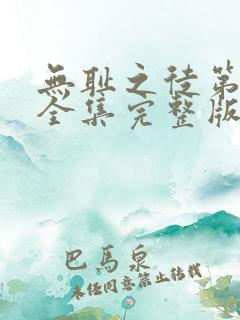 無耻之徒第
全集完整版
巴馬泉
未经同意禁止转载